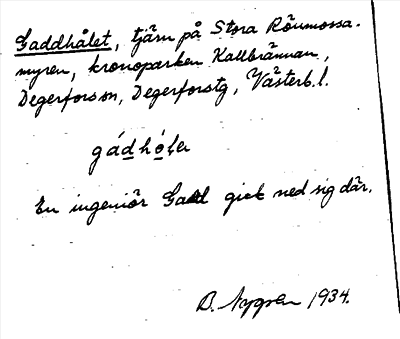 Gaddhålet, tjärn på Stora Römossa-
myren, kronoparken Kallbrännan,
Degerfors sn, Degerforstg, Västerb. l.
gádhóle
En ingeniör Gadd gick ned sig där.
B. Nygren 1934.